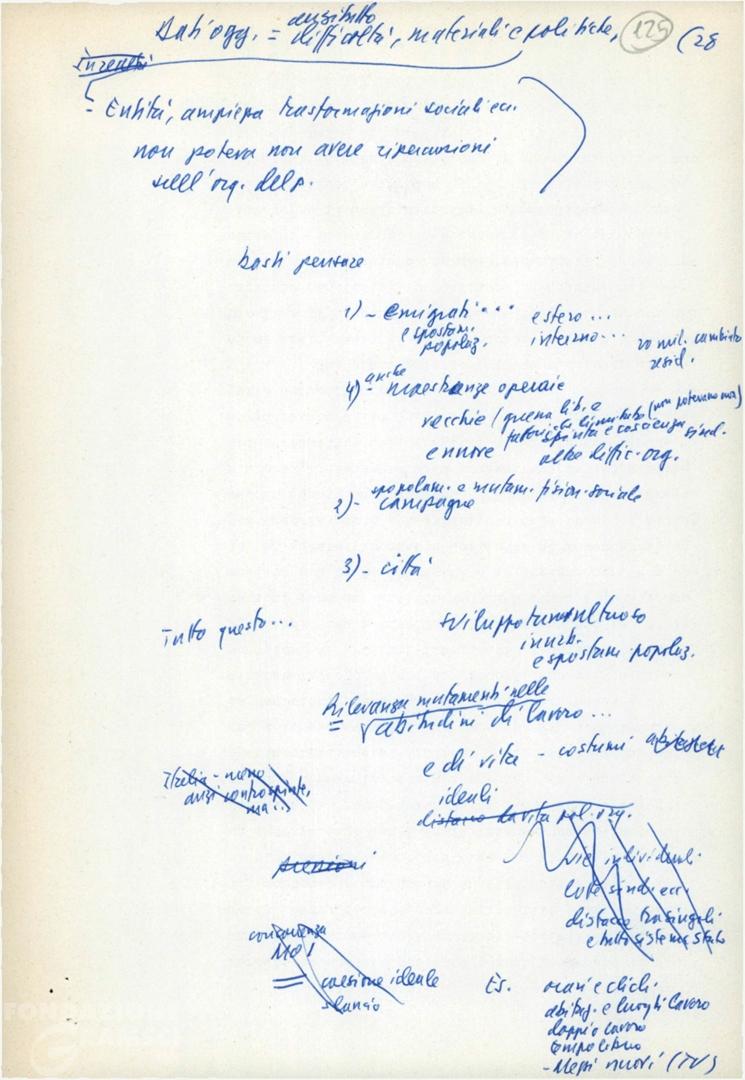 Dati ogg. = anzitutto difficoltà, materiali e politiche, 125 (28
- Entità, ampiezza trasformazioni sociali ecc.
non poteva non avere ripercussioni
sull'org. del p.
basti pensare
1) - emigrati ... estero ...
e spostam. popolaz. interno ... 20 mil. cambiato resid.
4) - anche maestranze operaie
vecchie (guerra lib. e
(non potevano ma)
spinta e coscienza sind.
e nuove altre diffic. org.
2) - spopolam. e mutam. fision. sociale
campagne
3) - città
Tutto questo ... sviluppo tumultuoso
inurb.
e spostam popolaz.
Rilevanza mutamenti nelle
= abitudini di lavoro ...
e di vita - costumi
Italia - meno
anzi controspinte,
ma ...
ideali
distacco da vita pol. org.
vie individuali.
lotte sind. ecc.
distacco tra singoli
e tutto sistema Stato
concorrenza
= coesione ideale
slancio
Es. orari e cicli.
abitaz. e luoghi lavoro
doppio lavoro
tempo libero
- Mezzi nuovi (TV)
FONDAZIONE
GRAMSCI